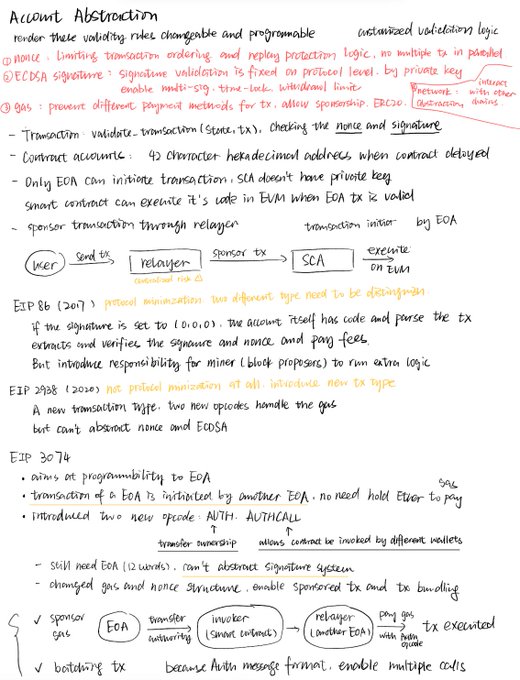 Account Abstraction
render these validity rules changeable and programmable customized validation logic
① nonce : limiting transaction ordering and replay protection logic, no multiple tx in parallel
② ECDSA signature : signature validation is fixed on protocol level, by private key
enable multi-sig, time-lock, withdrawal limit
③ gas : prevent different payment methods for tx, allow sponsorship, ERC20.
network abstraction : interact with other chains
- Transaction : validate_transaction(state, tx), checking the nonce and signature
- Contract accounts : 42 character hexadecimal address when contract deloyed
- Only EOA can initiate transaction, SCA doesn't have private key
smart contract can execute it's code in EVM when EOA tx is valid
- sponsor transaction through relayer transaction initiat by EOA
user send tx relayer sponsor tx SCA execute on EVM
centralized risk ⚠
EIP 86 (2017) protocol minimization two different type need to be distinguish
if the signature is set to (0,0,0), the account itself has code and parse the tx
extracts and verifies the signaure and nonce and pay fees.
But introduce responsibility for miner (block proposers) to run extra logic
EIP 2938 (2020) not protocol minization at all, introduce new tx type
A new transaction type, two new opcodes handle the gas
but can't abstract nonce and ECDSA
EIP 3074
• aims at programmbility to EOA
• transaction of a EOA is initiated by another EOA, no need hold Ether to pay gas
• introduced two new opcode : AUTH, AUTHCALL
transfer ownership allows contract be invoked by different wallets
- still need EOA (12 words), can't abstract signature system
- changed gas and nonce structure, enable sponsored tx and tx bundling
✓ sponsor gas EOA transfer authority invoker (smart contract) relayer (another EOA) pay gas with Auth opcode tx executed
✓ batching tx because Auth message format, enable multiple calls